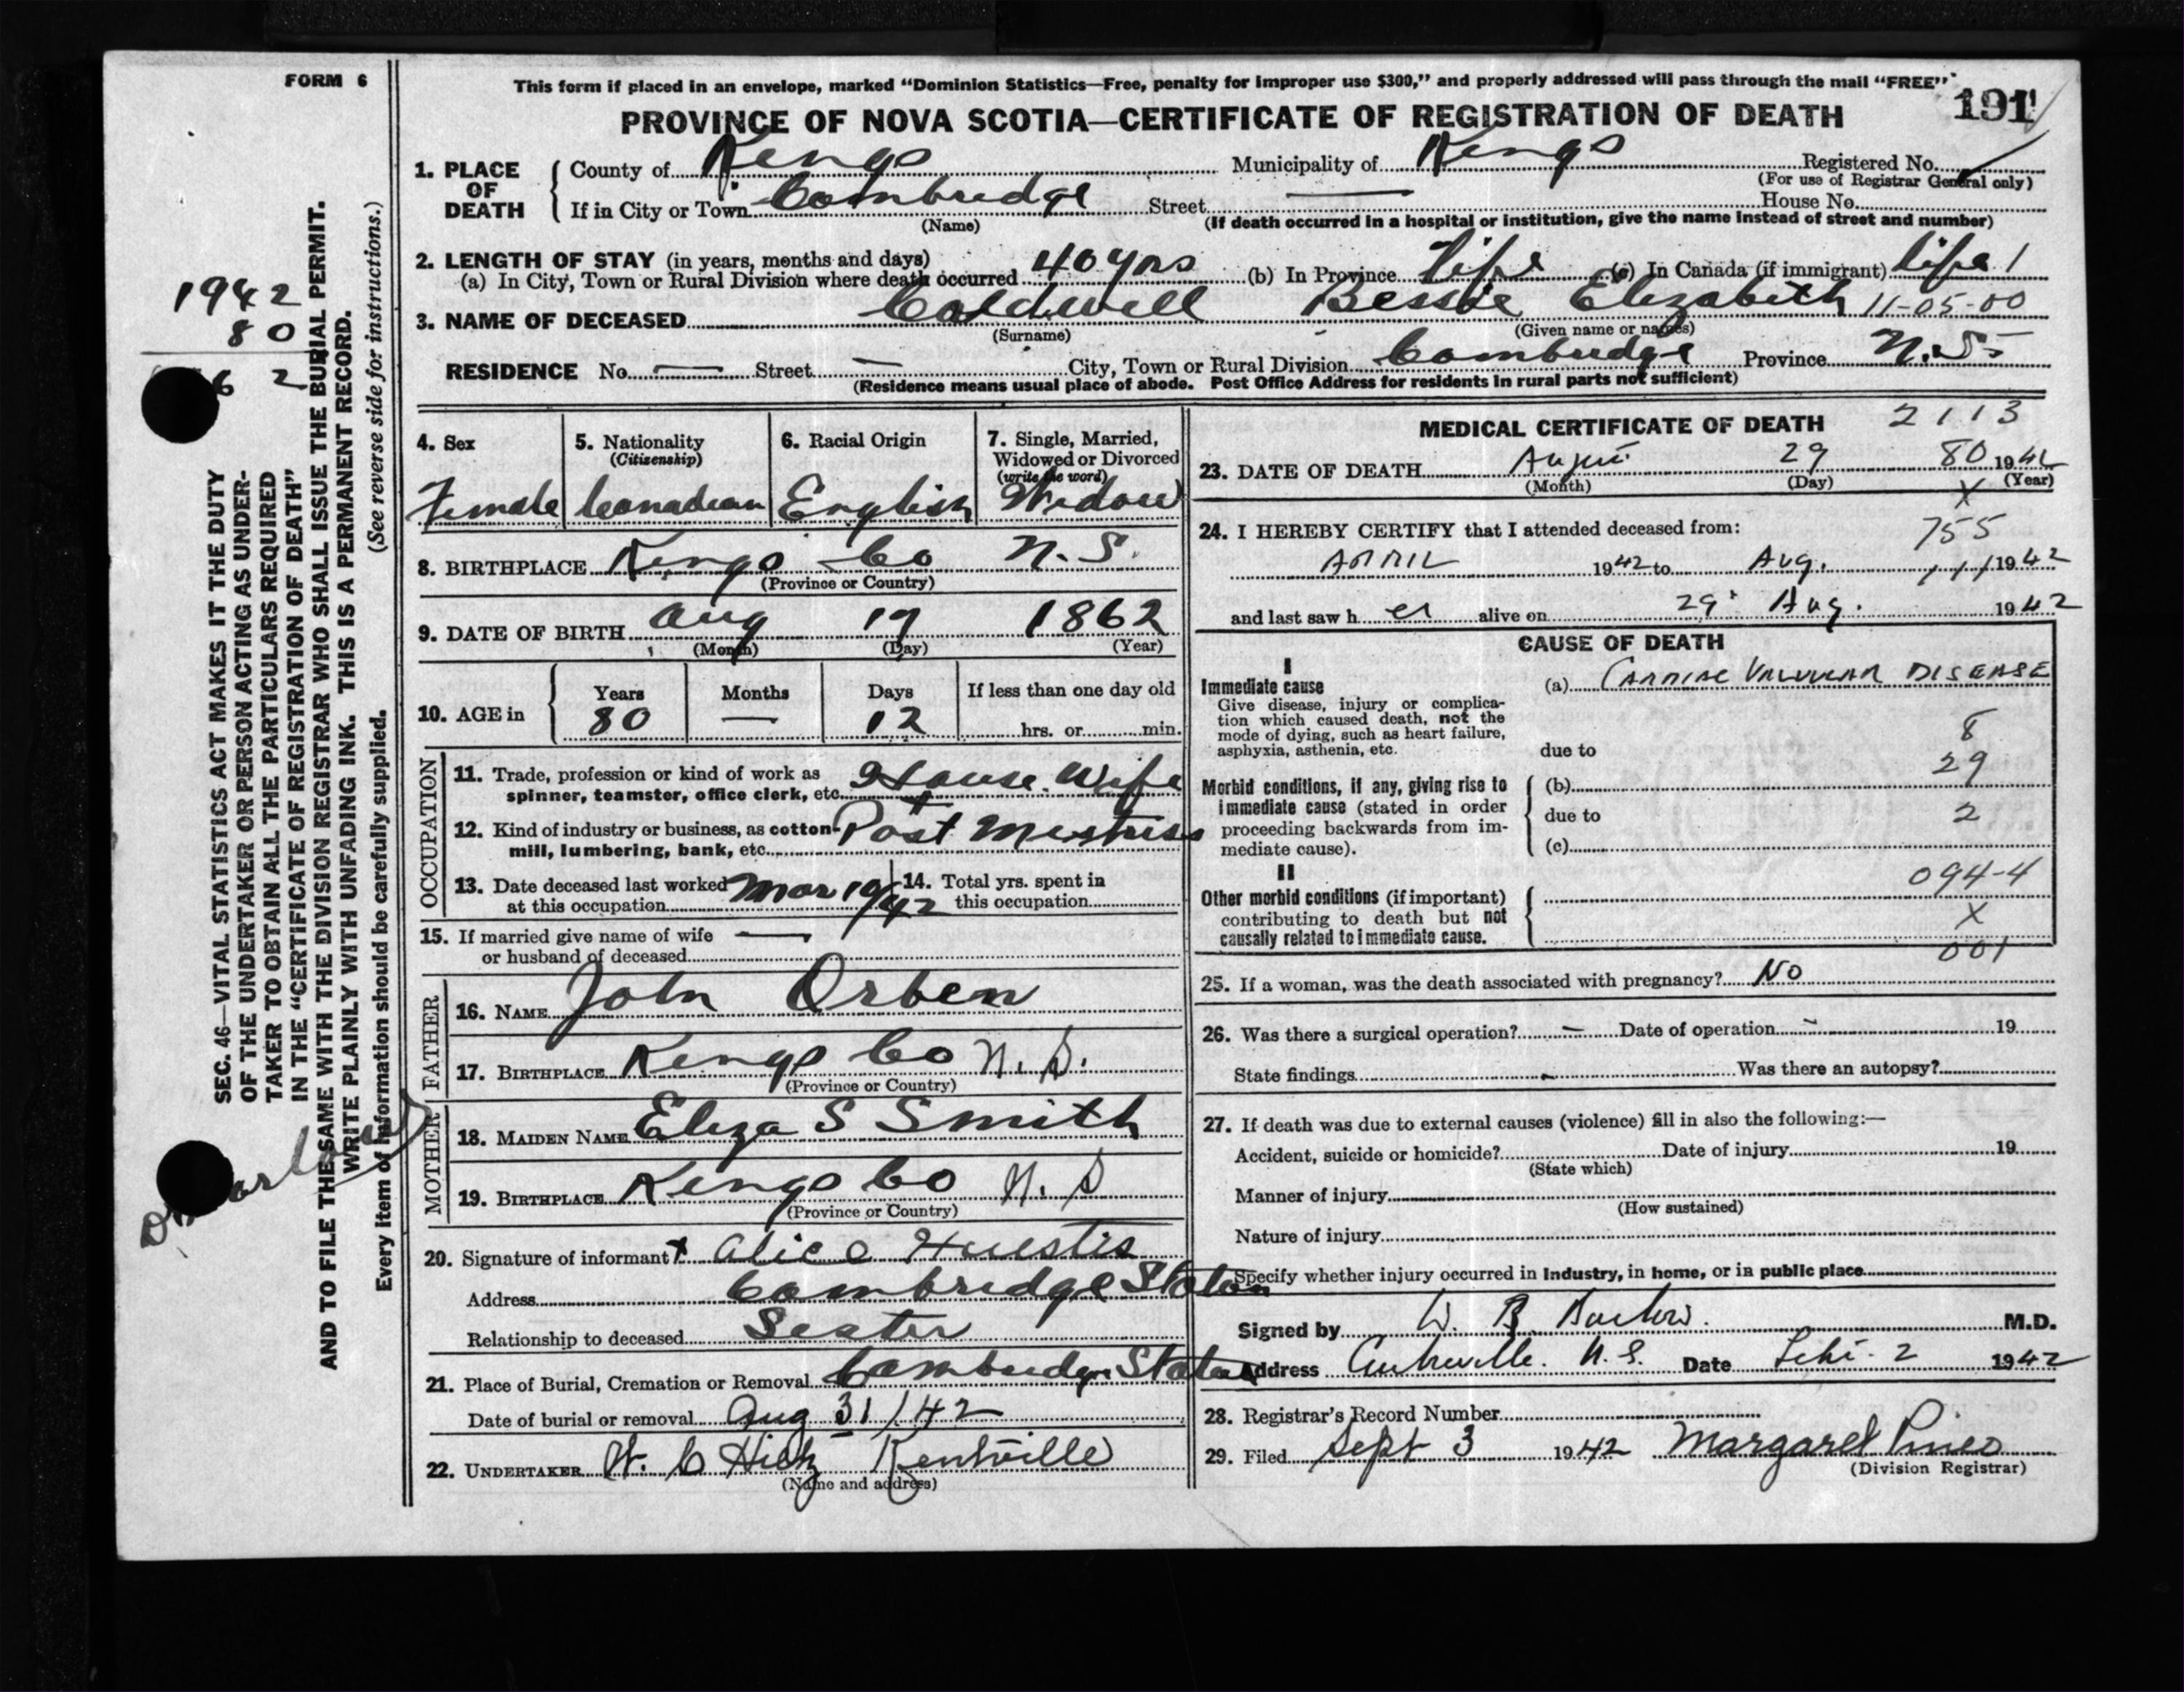 FORM 6
This form if placed in an envelope, marked "Dominion Statistics—Free, penalty for improper use $300," and properly addressed will pass through the mail "FREE"
191
PROVINCE OF NOVA SCOTIA—CERTIFICATE OF REGISTRATION OF DEATH
1. PLACE OF DEATH
County of Kings Municipality of Kings Registered No.
(For use of Registrar General only)
If in City or Town Cambridge Street — House No.
(Name) (If death occurred in a hospital or institution, give the name instead of street and number)
2. LENGTH OF STAY (in years, months and days)
(a) In City, Town or Rural Division where death occurred 40 yrs (b) In Province life (c) In Canada (if immigrant) life 1
3. NAME OF DECEASED Coldwell Bessie Elizabeth 11-05-00
(Surname) (Given name or names)
RESIDENCE No. — Street — City, Town or Rural Division Cambridge Province N.S.
(Residence means usual place of abode. Post Office Address for residents in rural parts not sufficient)
4. Sex
Female
5. Nationality
(Citizenship)
Canadian
6. Racial Origin
English
7. Single, Married, Widowed or Divorced
(write the word)
Widow
8. BIRTHPLACE Kings Co N.S.
(Province or Country)
9. DATE OF BIRTH Aug 17 1862
(Month) (Day) (Year)
10. AGE in
Years Months Days If less than one day old
80 — 12 hrs. or min.
OCCUPATION
11. Trade, profession or kind of work as House Wife
spinner, teamster, office clerk, etc. +
12. Kind of industry or business, as cotton- Post Mistress
mill, lumbering, bank, etc.
13. Date deceased last worked Mar 1942
at this occupation
14. Total yrs. spent in
this occupation
15. If married give name of wife —
or husband of deceased
FATHER
16. NAME John Orben
17. BIRTHPLACE Kings Co N.S.
(Province or Country)
MOTHER
18. MAIDEN NAME Eliza S Smith
19. BIRTHPLACE Kings Co N.S
(Province or Country)
20. Signature of informant x Alice Huestis
Address Cambridge Station
Relationship to deceased Sister
21. Place of Burial, Cremation or Removal Cambridge Station
Date of burial or removal Aug 31/42
22. UNDERTAKER W. C Hiltz Kentville
(Name and address)
MEDICAL CERTIFICATE OF DEATH 2113
23. DATE OF DEATH August 29 80 1942
(Month) (Day) (Year)
X
24. I HEREBY CERTIFY that I attended deceased from: 755
APRIL 1942 to Aug. 1942
and last saw her alive on 29 Aug. 1942
CAUSE OF DEATH
I
Immediate cause (a) CARDIAC VALVULAR DISEASE
Give disease, injury or complica-
tion which caused death, not the
mode of dying, such as heart failure, 8
asphyxia, asthenia, etc. due to
29
Morbid conditions, if any, giving rise to (b)
immediate cause (stated in order due to 2
proceeding backwards from im-
mediate cause). (c)
II 094-4
Other morbid conditions (if important)
contributing to death but not X
causally related to immediate cause.
001
25. If a woman, was the death associated with pregnancy? No
26. Was there a surgical operation? – Date of operation – 19
State findings Was there an autopsy?
27. If death was due to external causes (violence) fill in also the following:—
Accident, suicide or homicide? Date of injury 19
(State which)
Manner of injury
(How sustained)
Nature of injury
Specify whether injury occurred in Industry, in home, or in public place
Signed by W. B. M.D.
Address N.S. Date 2 1942
28. Registrar's Record Number
29. Filed Sept 3 1942 Margaret Pineo
(Division Registrar)
1942
80
62
SEC. 46—VITAL STATISTICS ACT MAKES IT THE DUTY
OF THE UNDERTAKER OR PERSON ACTING AS UNDER-
TAKER TO OBTAIN ALL THE PARTICULARS REQUIRED
IN THE "CERTIFICATE OF REGISTRATION OF DEATH"
AND TO FILE THE SAME WITH THE DIVISION REGISTRAR WHO SHALL ISSUE THE BURIAL PERMIT.
WRITE PLAINLY WITH UNFADING INK. THIS IS A PERMANENT RECORD.
Every item of information should be carefully supplied. (See reverse side for instructions.)